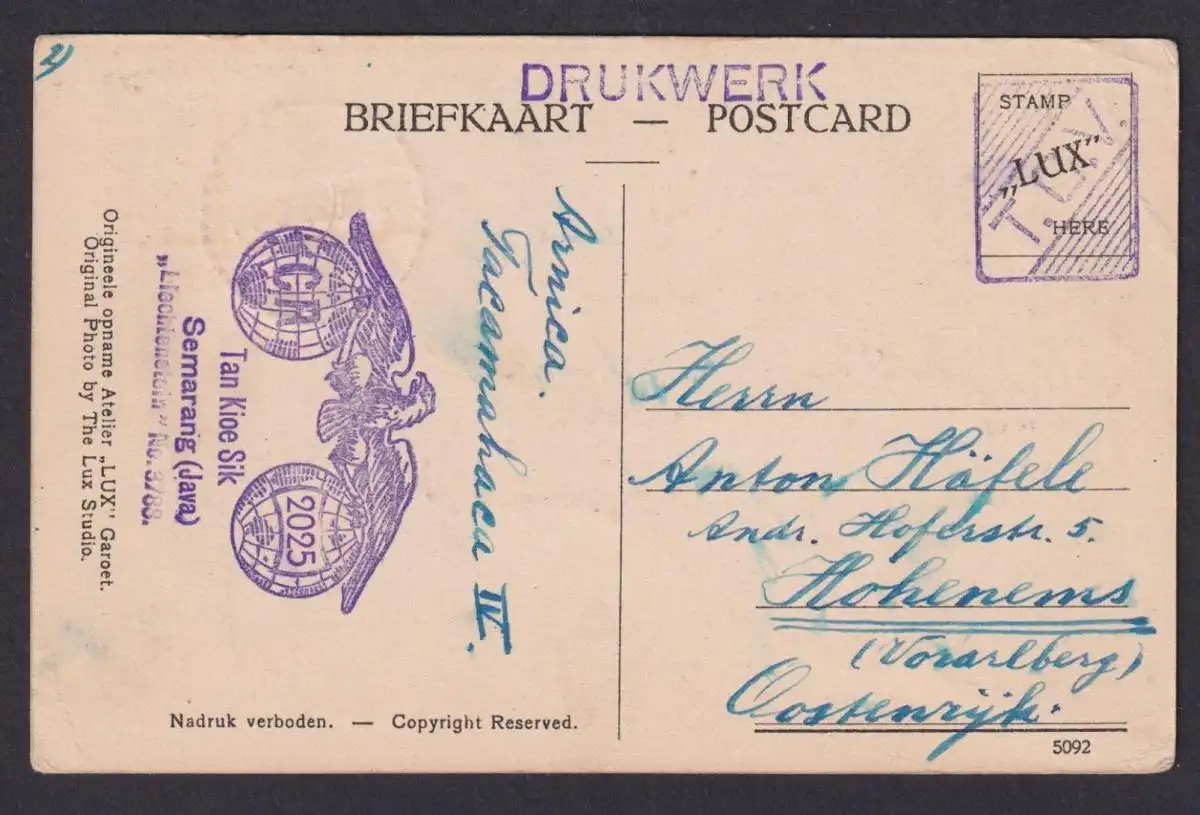 2)
DRUKWERK
BRIEFKAART — POSTCARD
STAMP
„LUX"
HERE
T.C.V.
Arnica.
Tacamahaca IV.
C.R.
2025
Tan Kioe Sik
Semarang (Java)
„Liechtenstein" No. 3788.
Origineele opname Atelier „LUX" Garoet.
Original Photo by The Lux Studio.
Herrn
Anton Häfele
Andr. Hoferstr. 5.
Hohenems
(Vorarlberg)
Oostenrijk.
Nadruk verboden. — Copyright Reserved.
5092